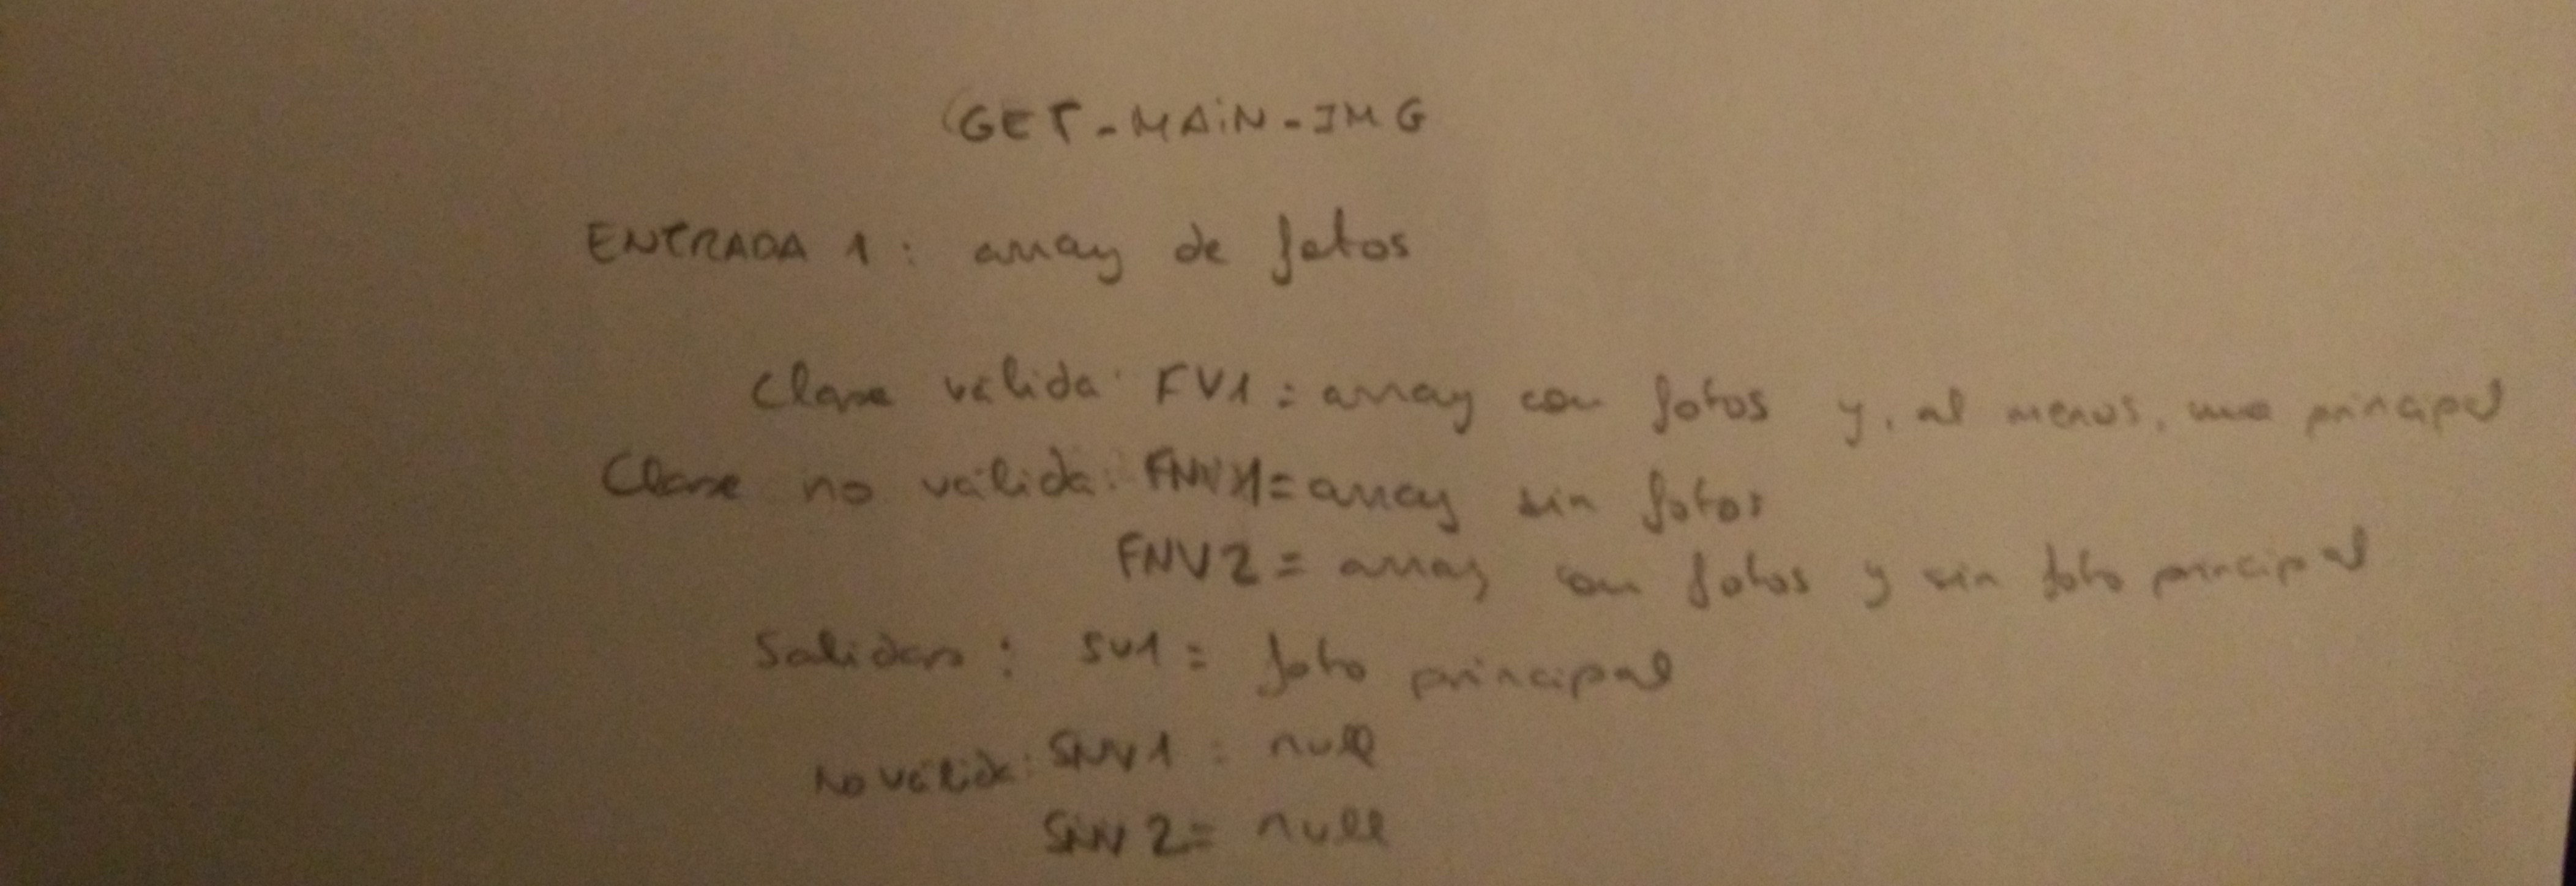 GET-MAiN-IMG
ENTRADA 1: array de fotos
Clase válida: FV1 = array con fotos y, al menos, una principal
Clase no válida: FNV1 = array sin fotos
FNV2 = array con fotos y sin foto principal
Salidas: SV1 = foto principal
No válida: SNV1 = null
SNV2 = null